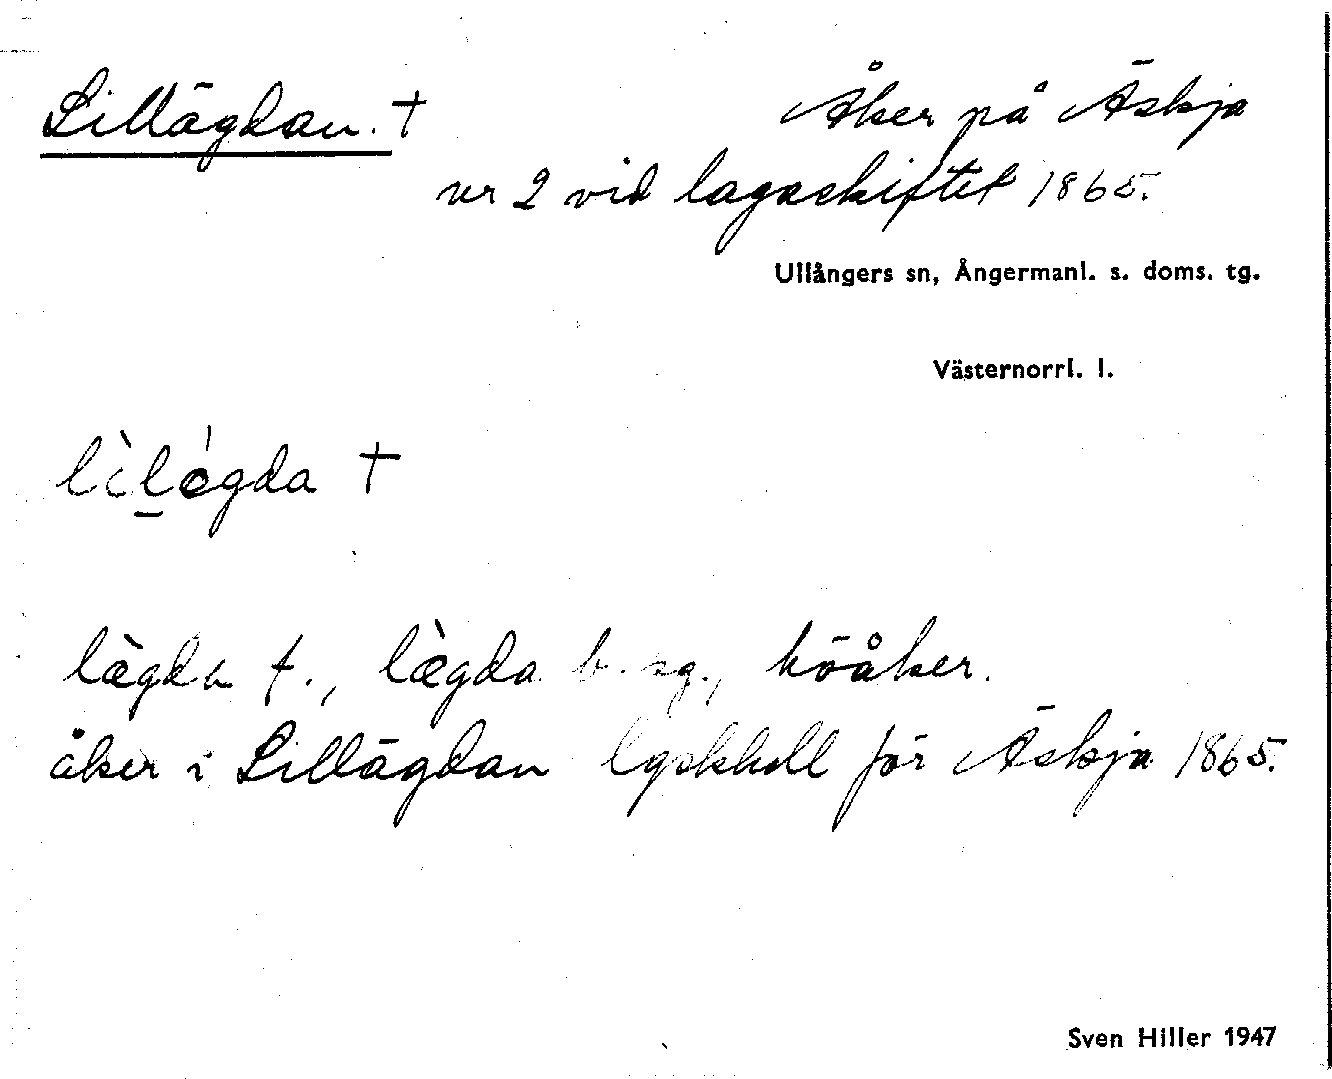 Lillägdan. †
Åker på Äskja
nr 2 vid lagaskiftet 1865.
Ullångers sn, Ångermanl. s. doms. tg.
Västernorrl. l.
lìlǿgda †
lægda f., lægda b. sg., höåker.
åker i Lillägdan lgskhdl för Äskja 1865.
Sven Hiller 1947